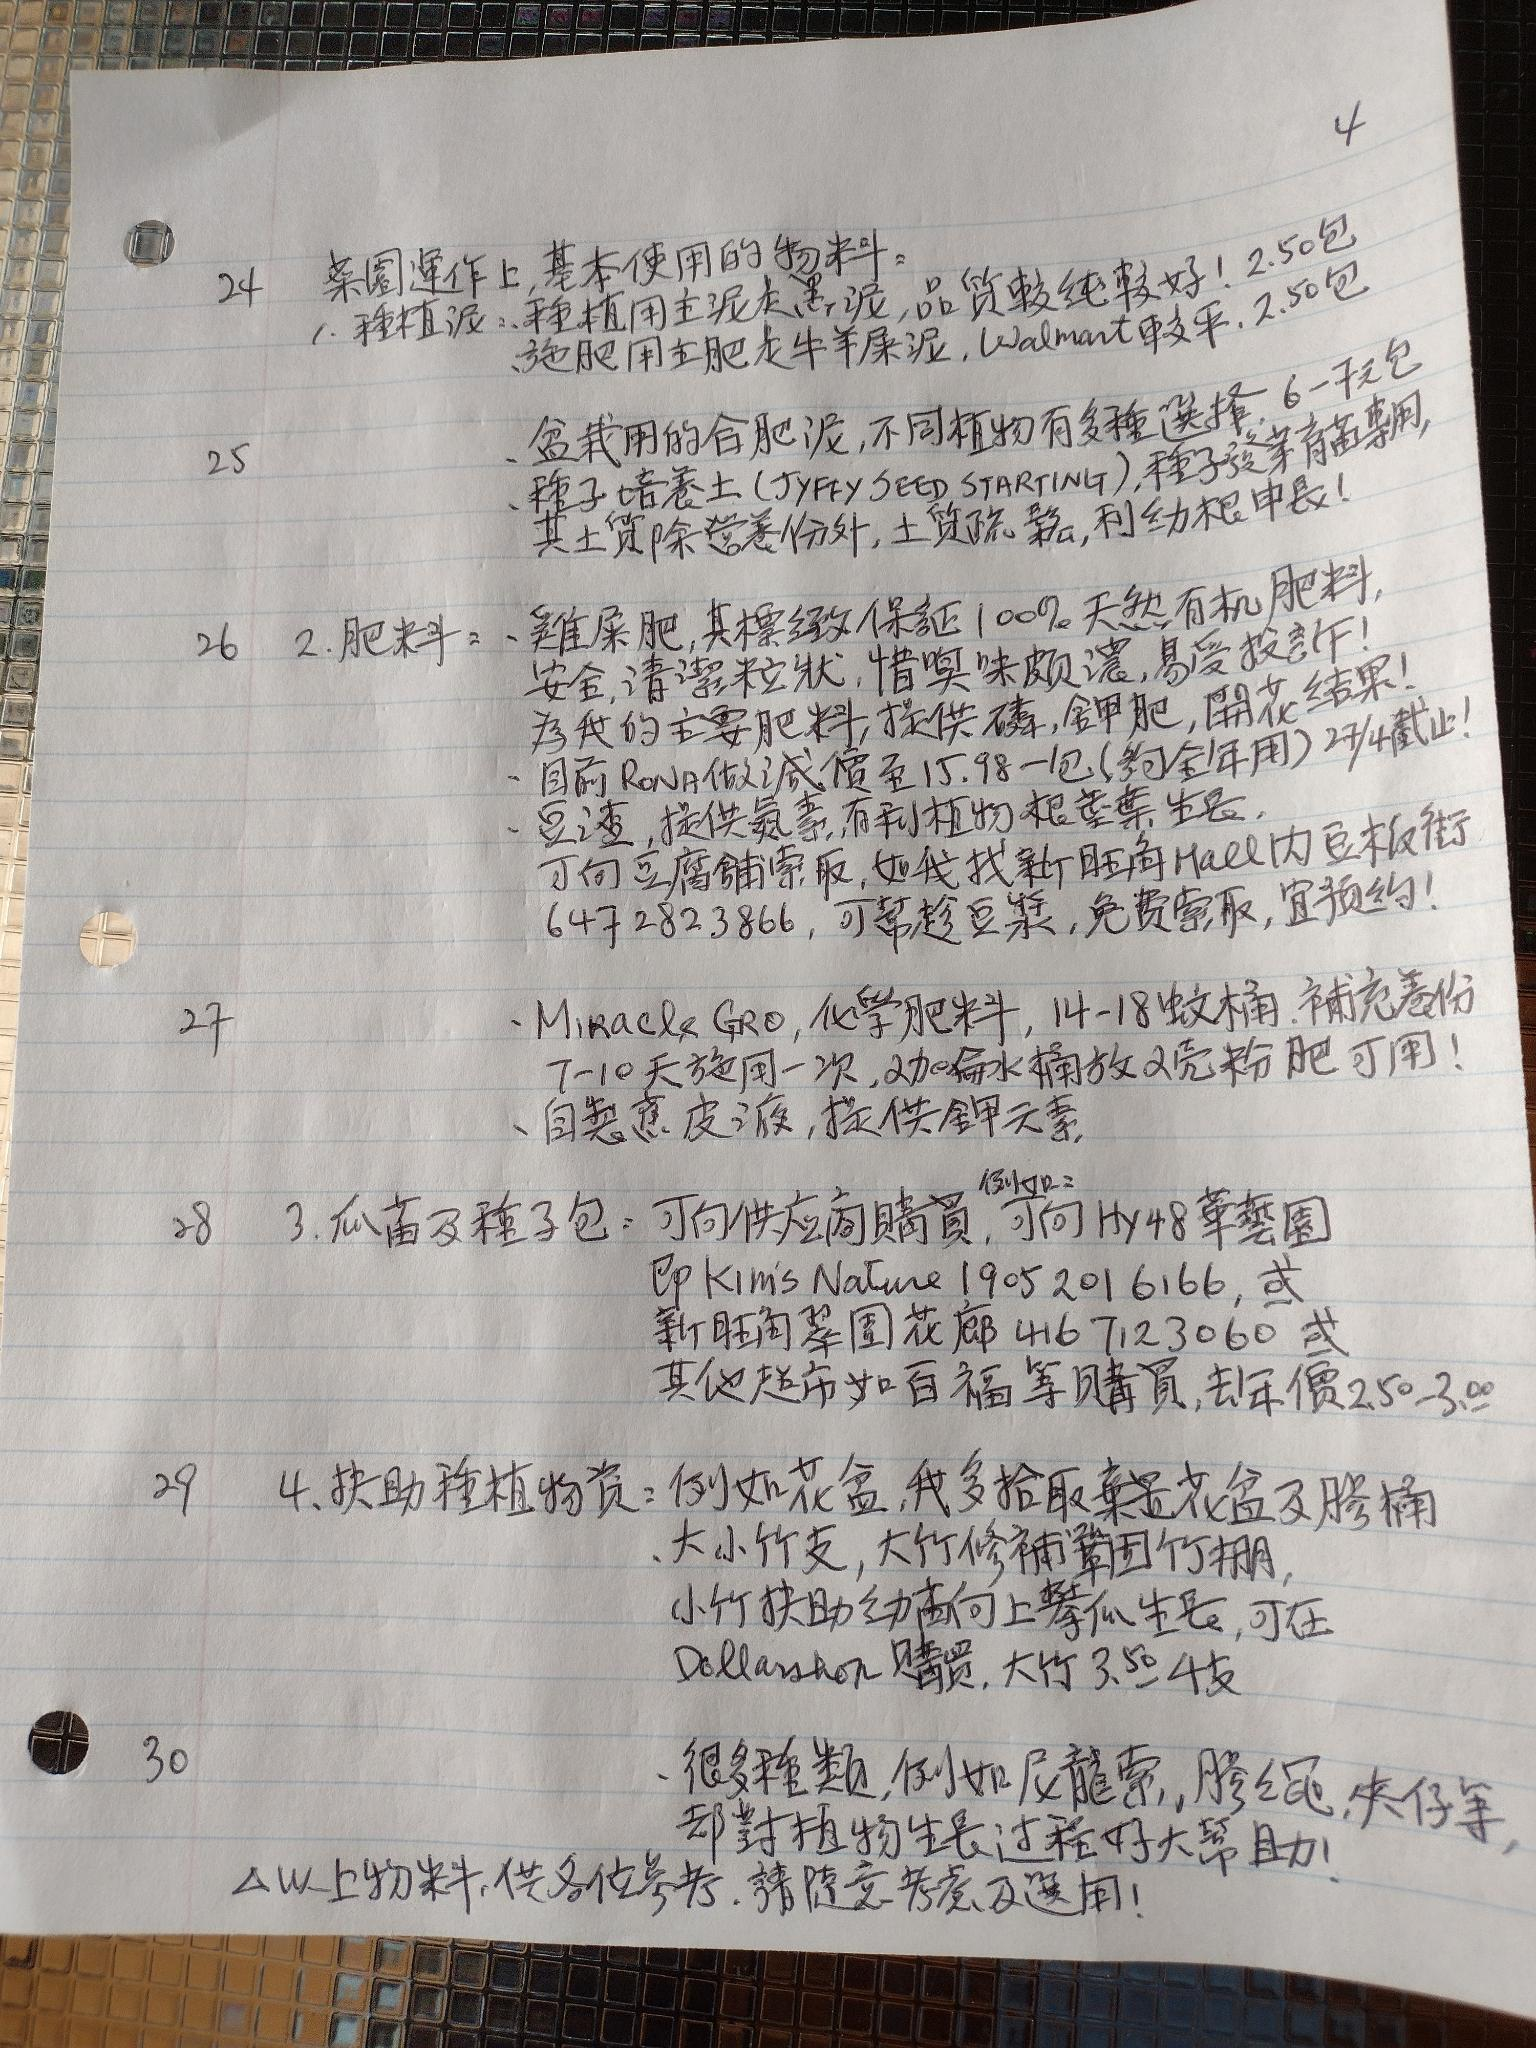 4
24 菜園運作上,基本使用的物料:
1. 種植泥:、種植用主泥是黑泥,品質較純較好! 2.50包
、施肥用主肥是牛羊屎泥,Walmart較平,2.50包
25 、盆栽用的合肥泥,不同植物有多種選擇,6-7元包
、種子培養土(JYFFY SEED STARTING),種子發芽育苗專用,
其土質除營養份外,土質疏鬆,利幼根申長!
26 2.肥料:、雞屎肥,其標緻保証100%天然有机肥料,
安全,清潔粒狀,惜嗅味頗濃,易受投訴!
為我的主要肥料,提供磷,鉀肥,開花結果!
、目前RONA做減價至15.98一包(約全年用)27/4截止!
、豆渣,提供氮素,有利植物根莖葉生長,
可向豆腐舖索取,如我找新旺角Mall內豆板街
647 2823866,可幫趁豆漿,免費索取,宜預約!
27 、Miracle GRO,化學肥料,14-18蚊桶.補充養份
7-10天施用一次,2加侖水桶放2壳粉肥可用!
、自製蕉皮液,提供鉀元素,
例如:
28 3.瓜苗及種子包:可向供应商購買,可向Hy48華藝園
即Kim's Nature 1905 201 6166,或
新旺角翠園花廊 416 7123060 或
其他超市如百福等購買,去年價2.50-3.00
29 4、扶助種植物資:例如花盆,我多拾取棄置花盆及膠桶
、大小竹支,大竹修補鞏固竹棚,
小竹扶助幼苗向上攀瓜生長,可在
Dollarshop 購買,大竹3.50 4支
30 、很多種類,例如尼龍索,膠繩,夾仔等,
却對植物生長过程好大幫助!
△以上物料,供各位參考.請隨意考慮及選用!